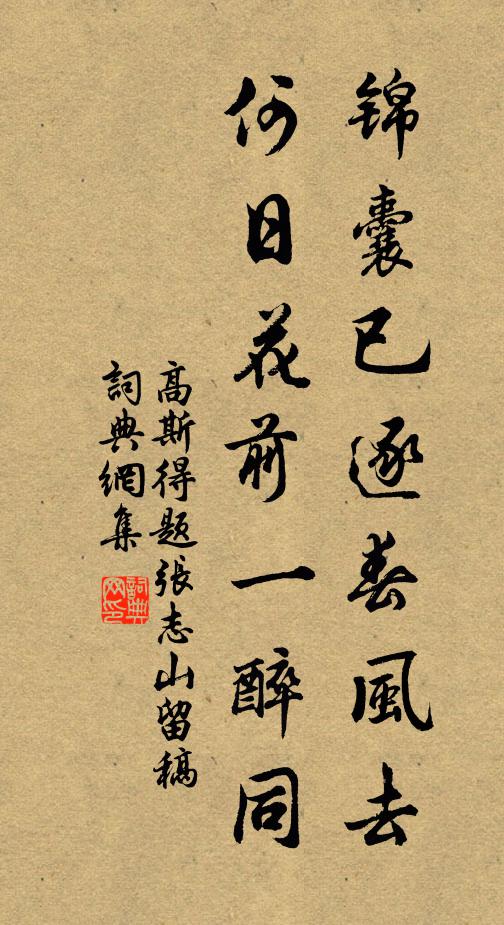 锦囊已逐春風去
何日花前一醉同
高斯得題張志山留稿
詞典網集
詞典網印